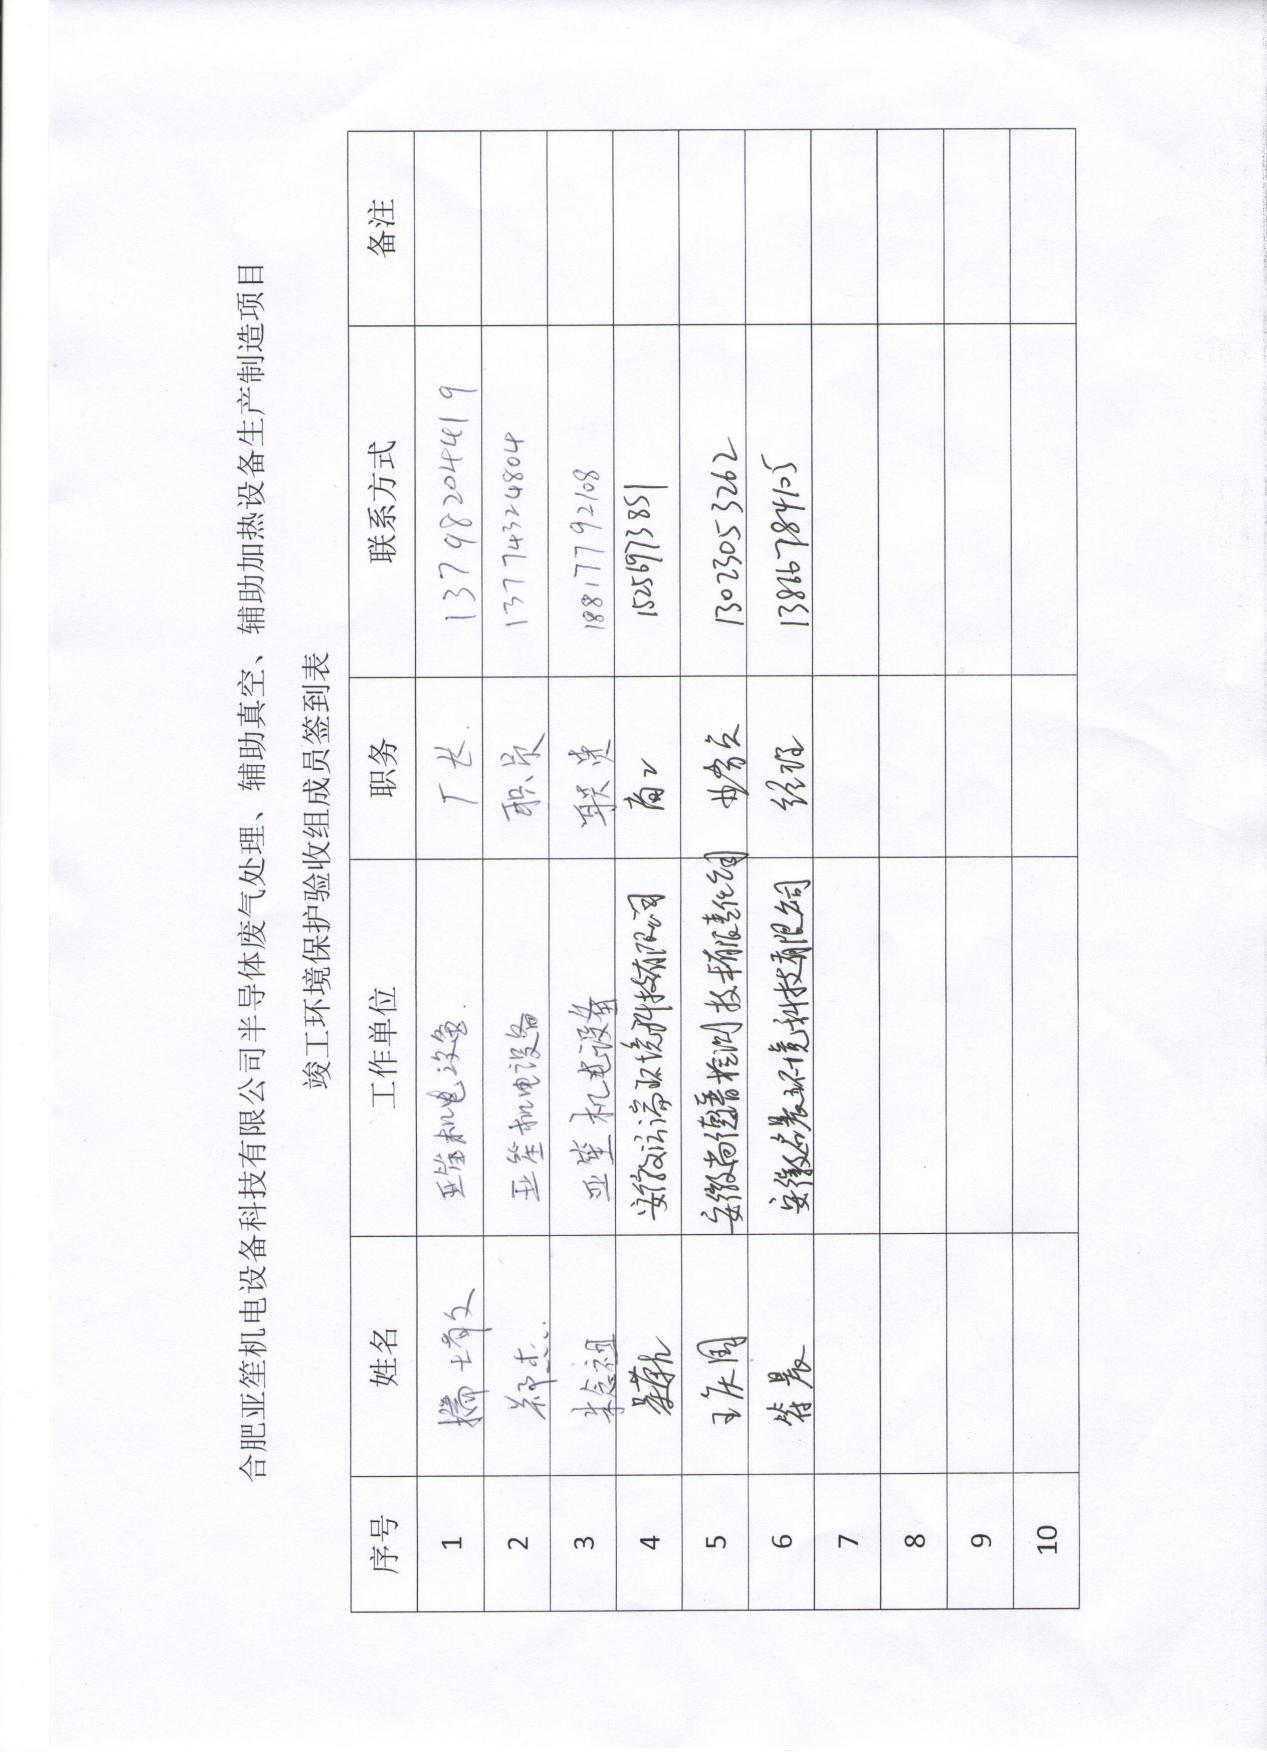 合肥亚笙机电设备科技有限公司半导体废气处理、辅助真空、辅助加热设备生产制造项目
竣工环境保护验收组成员签到表
序号 姓名 工作单位 职务 联系方式 备注
1 亚笙机电设备. 厂长. 13798204419
2 郑杰 亚笙机电设备 职员 13774324804
3 朱念祖 亚笙机电设备 职员 18817792108
4 安徽 环境科技有限公司 15256973851
5 王庆周 安徽尚德谱检测技术有限责任公司 13023053262
6 符晨 安徽 环境科技有限公司 经理 13866784105
7
8
9
10